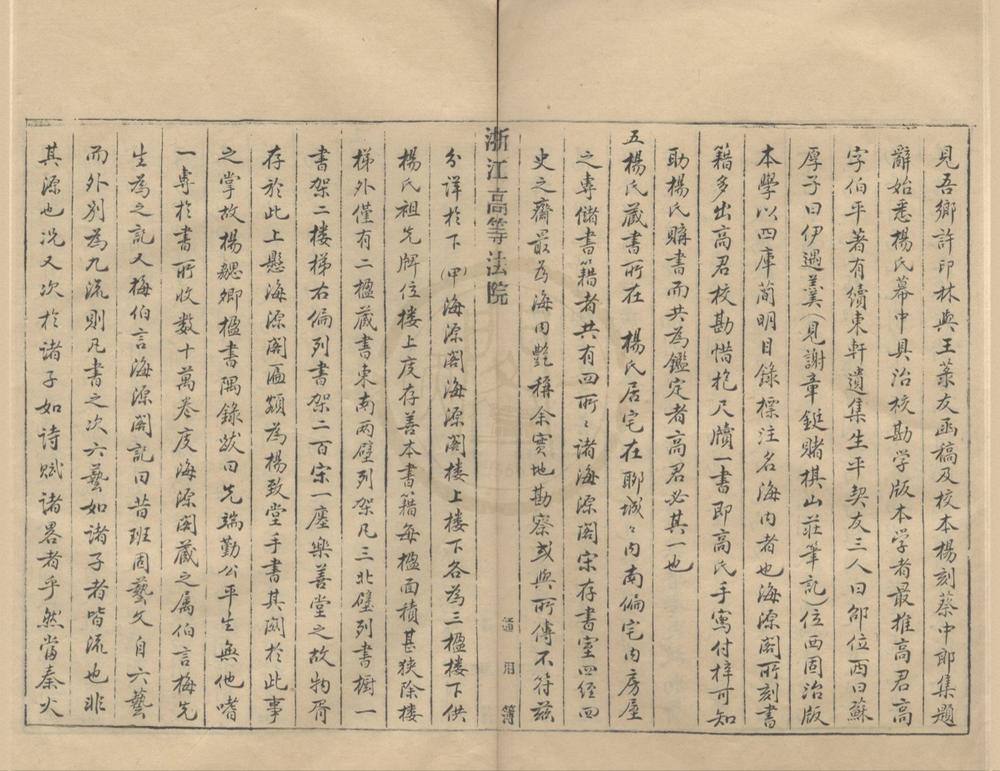 見吾鄉許印林與王菉友函稿及校本楊刻蔡中郎集題
辭始悉楊氏幕中具治校勘学版本学者最推高君高
字伯平著有續東軒遺集生平契友三人曰邵位西曰蘇
厚子曰伊遇羹(見謝章鋌賭棋山莊筆記)位西固治版
本學以四庫簡明目錄標注名海内者也海源閣所刻書
籍多出高君校勘惜抱尺牘一書即高氏手寫付梓可知
助楊氏購書而共為鑑定者高君必其一也
五楊氏藏書所在 楊氏居宅在聊城々内南偏宅内房屋
之專儲書籍者共有四所々諸海源閣宋存書室四经四
史之齋最為海内艷稱余實地勘察或與所傳不符兹
浙江高等法院
通用簿
分详於下(甲)海源閣海源閣樓上樓下各為三楹樓下供
楊氏祖先牌位樓上庋存善本書籍每楹面積甚狹除樓
梯外僅有二楹藏書東南兩壁列架凡三北壁列書櫥一
書架二樓梯右偏列書架二百宋一廛樂善堂之故物胥
存於此上懸海源閣匾額為楊致堂手書其関於此事
之掌故楊勰卿楹書隅錄跋曰先端勤公平生無他嗜
一專於書所收数十萬卷庋海源閣藏之属伯言梅先
生為之記又梅伯言海源閣記曰昔班固藝文自六藝
而外别為九流則凡書之次六藝如諸子者皆流也非
其源也况又次於諸子如詩賦諸畧者乎然當秦火